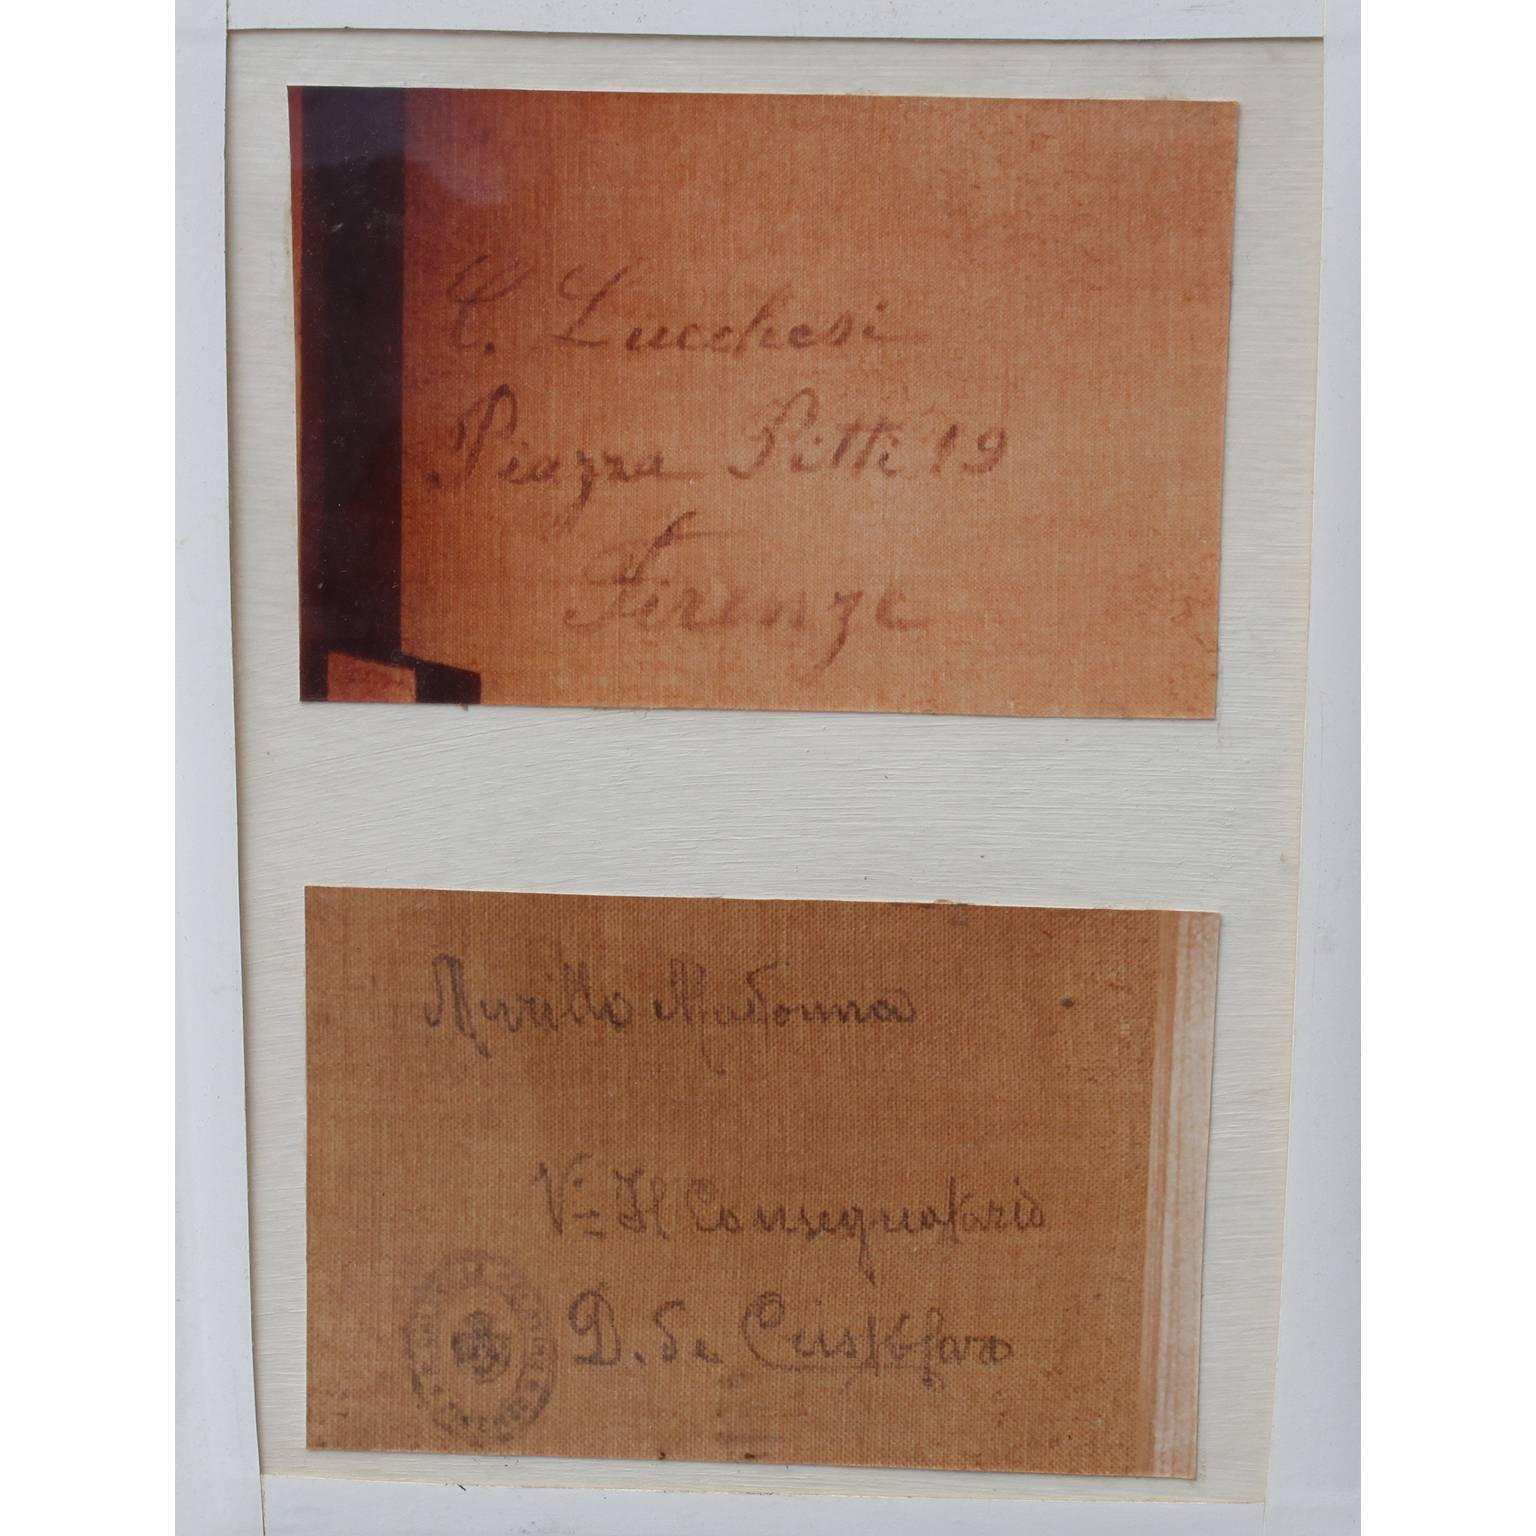 C. Lucchesi
Piazza Pitti 19
Firenze
Murillo Madonna
Vº Il Consegnatario
D. de